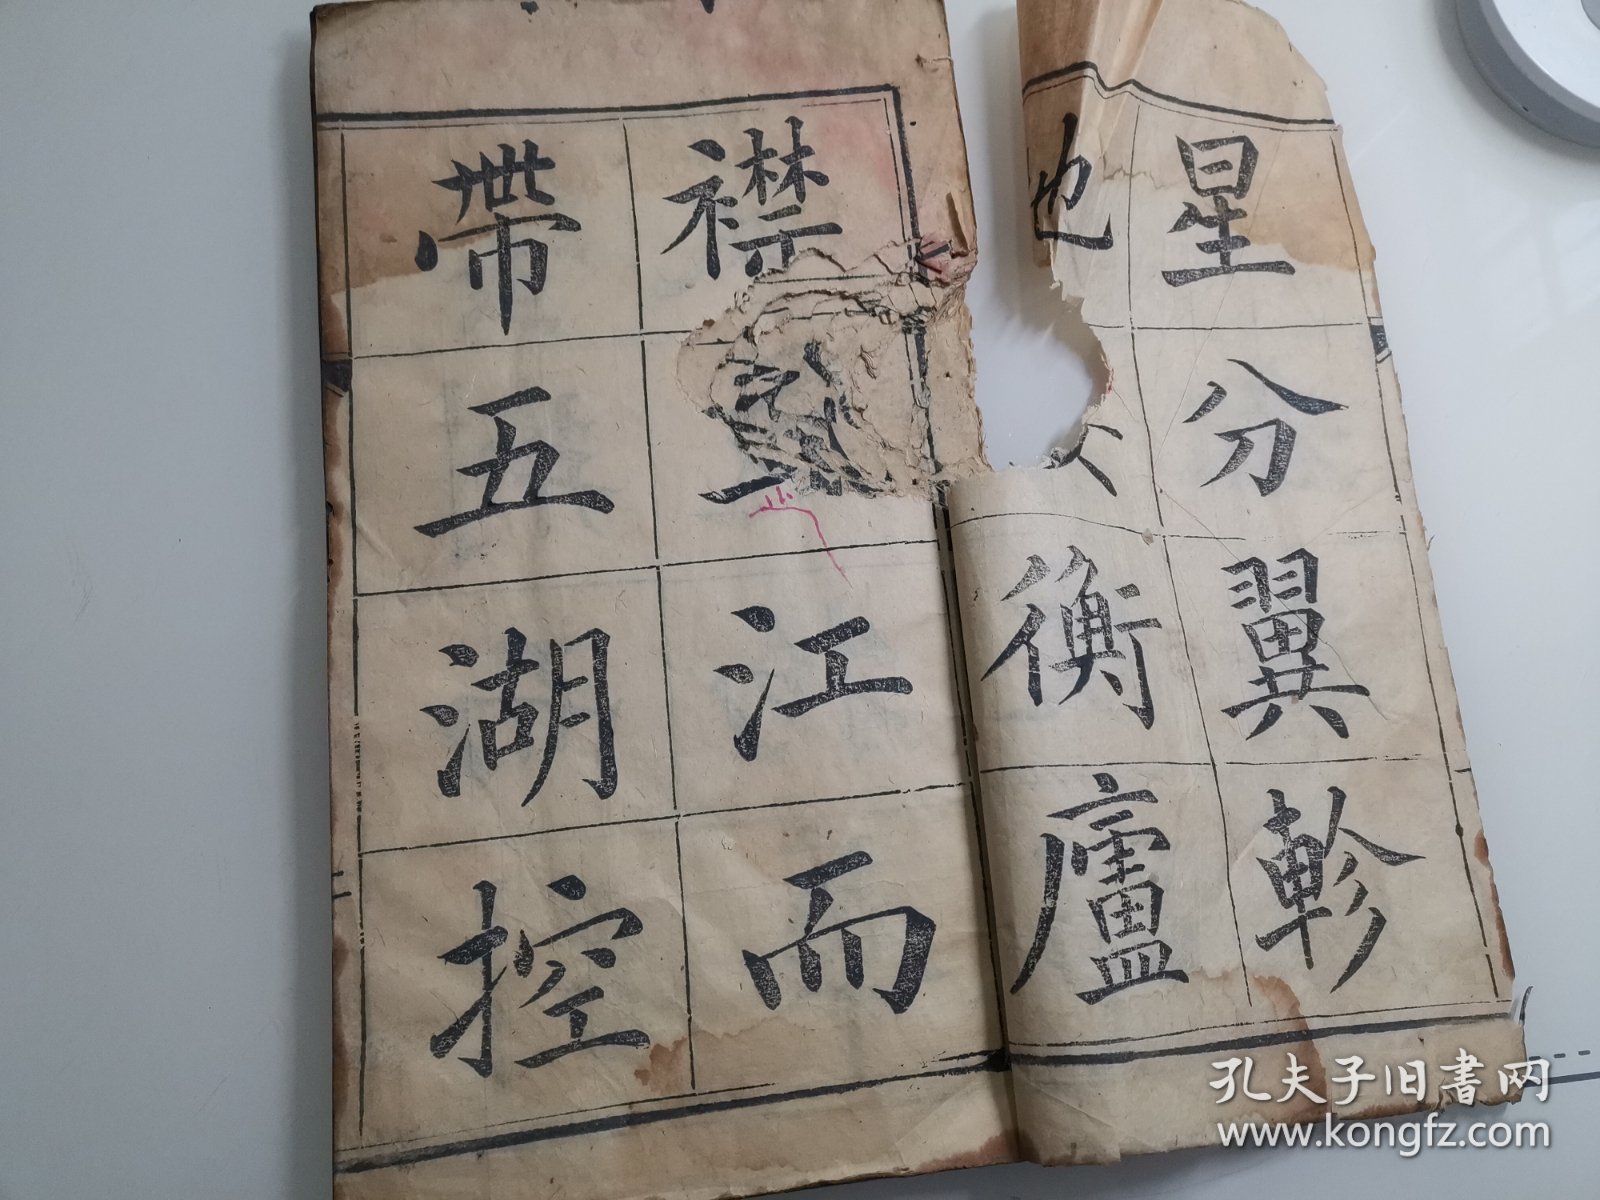 星分翼軫
地 衡廬
襟 江而
帶五湖控
孔夫子旧书网
www.kongfz.com